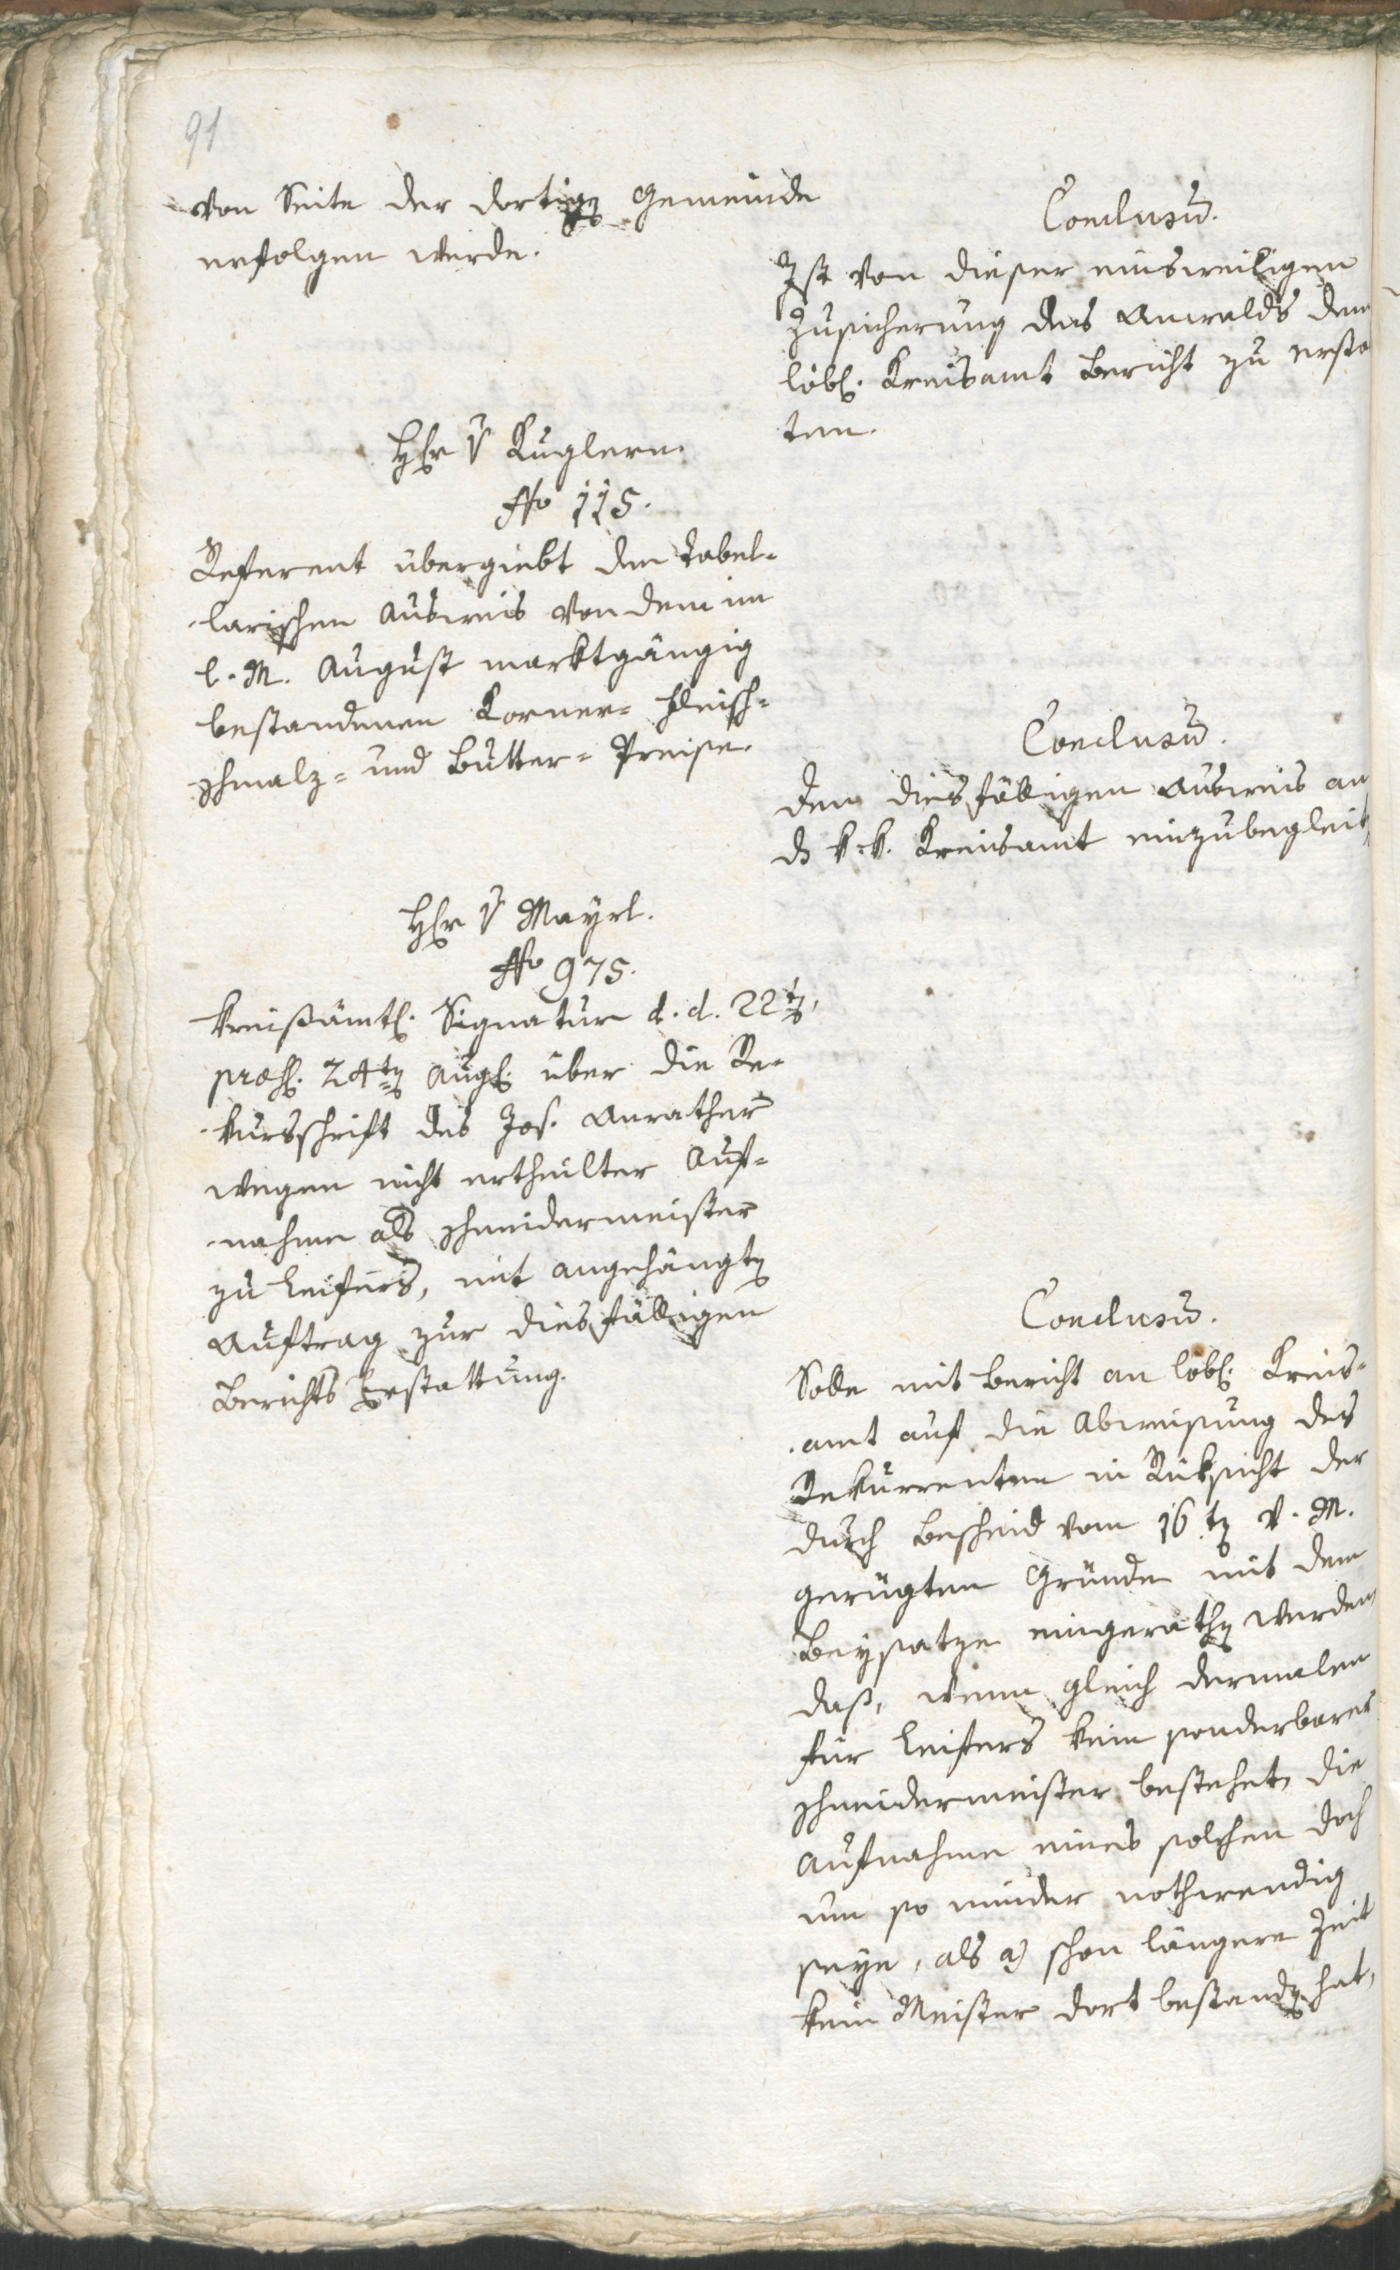 91
von Seite der dortigen Gemeinde
erfolgen werde.
Conclusum.
Ist von dieser einsweiligen
Zusicherung des Anwalds dem
löbl. Kreisamt Bericht zu erstat
ten.
Hr v Kuglern.
No 115.
Referent übergiebt den tabel-
larischen Ausweis von dem im
l. M. August marktgängig
bestandenen Korner- Fleisch-
Schmalz- und Butter- Preise.
Conclusum.
Den diesfälligen Ausweis an
ds k. k. Kreisamt einzubegleiten
Hr v Mayrl.
No 975.
Kreißämtl. Signatur d. d. 22ten,
præs. 24ten Aug. über die Re-
kursschrift des Jos. Anrather
wegen nicht ertheilter Auf-
nahme als Schneidermeister
zu Leifers, mit angehängten
Auftrag zur diesfälligen
Berichts Erstattung.
Conclusum.
Solle mit Bericht an löbl. Kreis-
amt auf die Abweisung des
Rekurrenten in Rüksicht der
durch Bescheid vom 16ten v. M.
gerügten Gründe mit dem
Beysatze eingerathen werden,
daß, wenn gleich dermalen
für Leifers kein sonderbarer
Schneidermeister bestehet, die
Aufnahme eines solchen doch
um so minder nothwendig
seye, als a) schon längere Zeit
kein Meister dort bestanden hat,